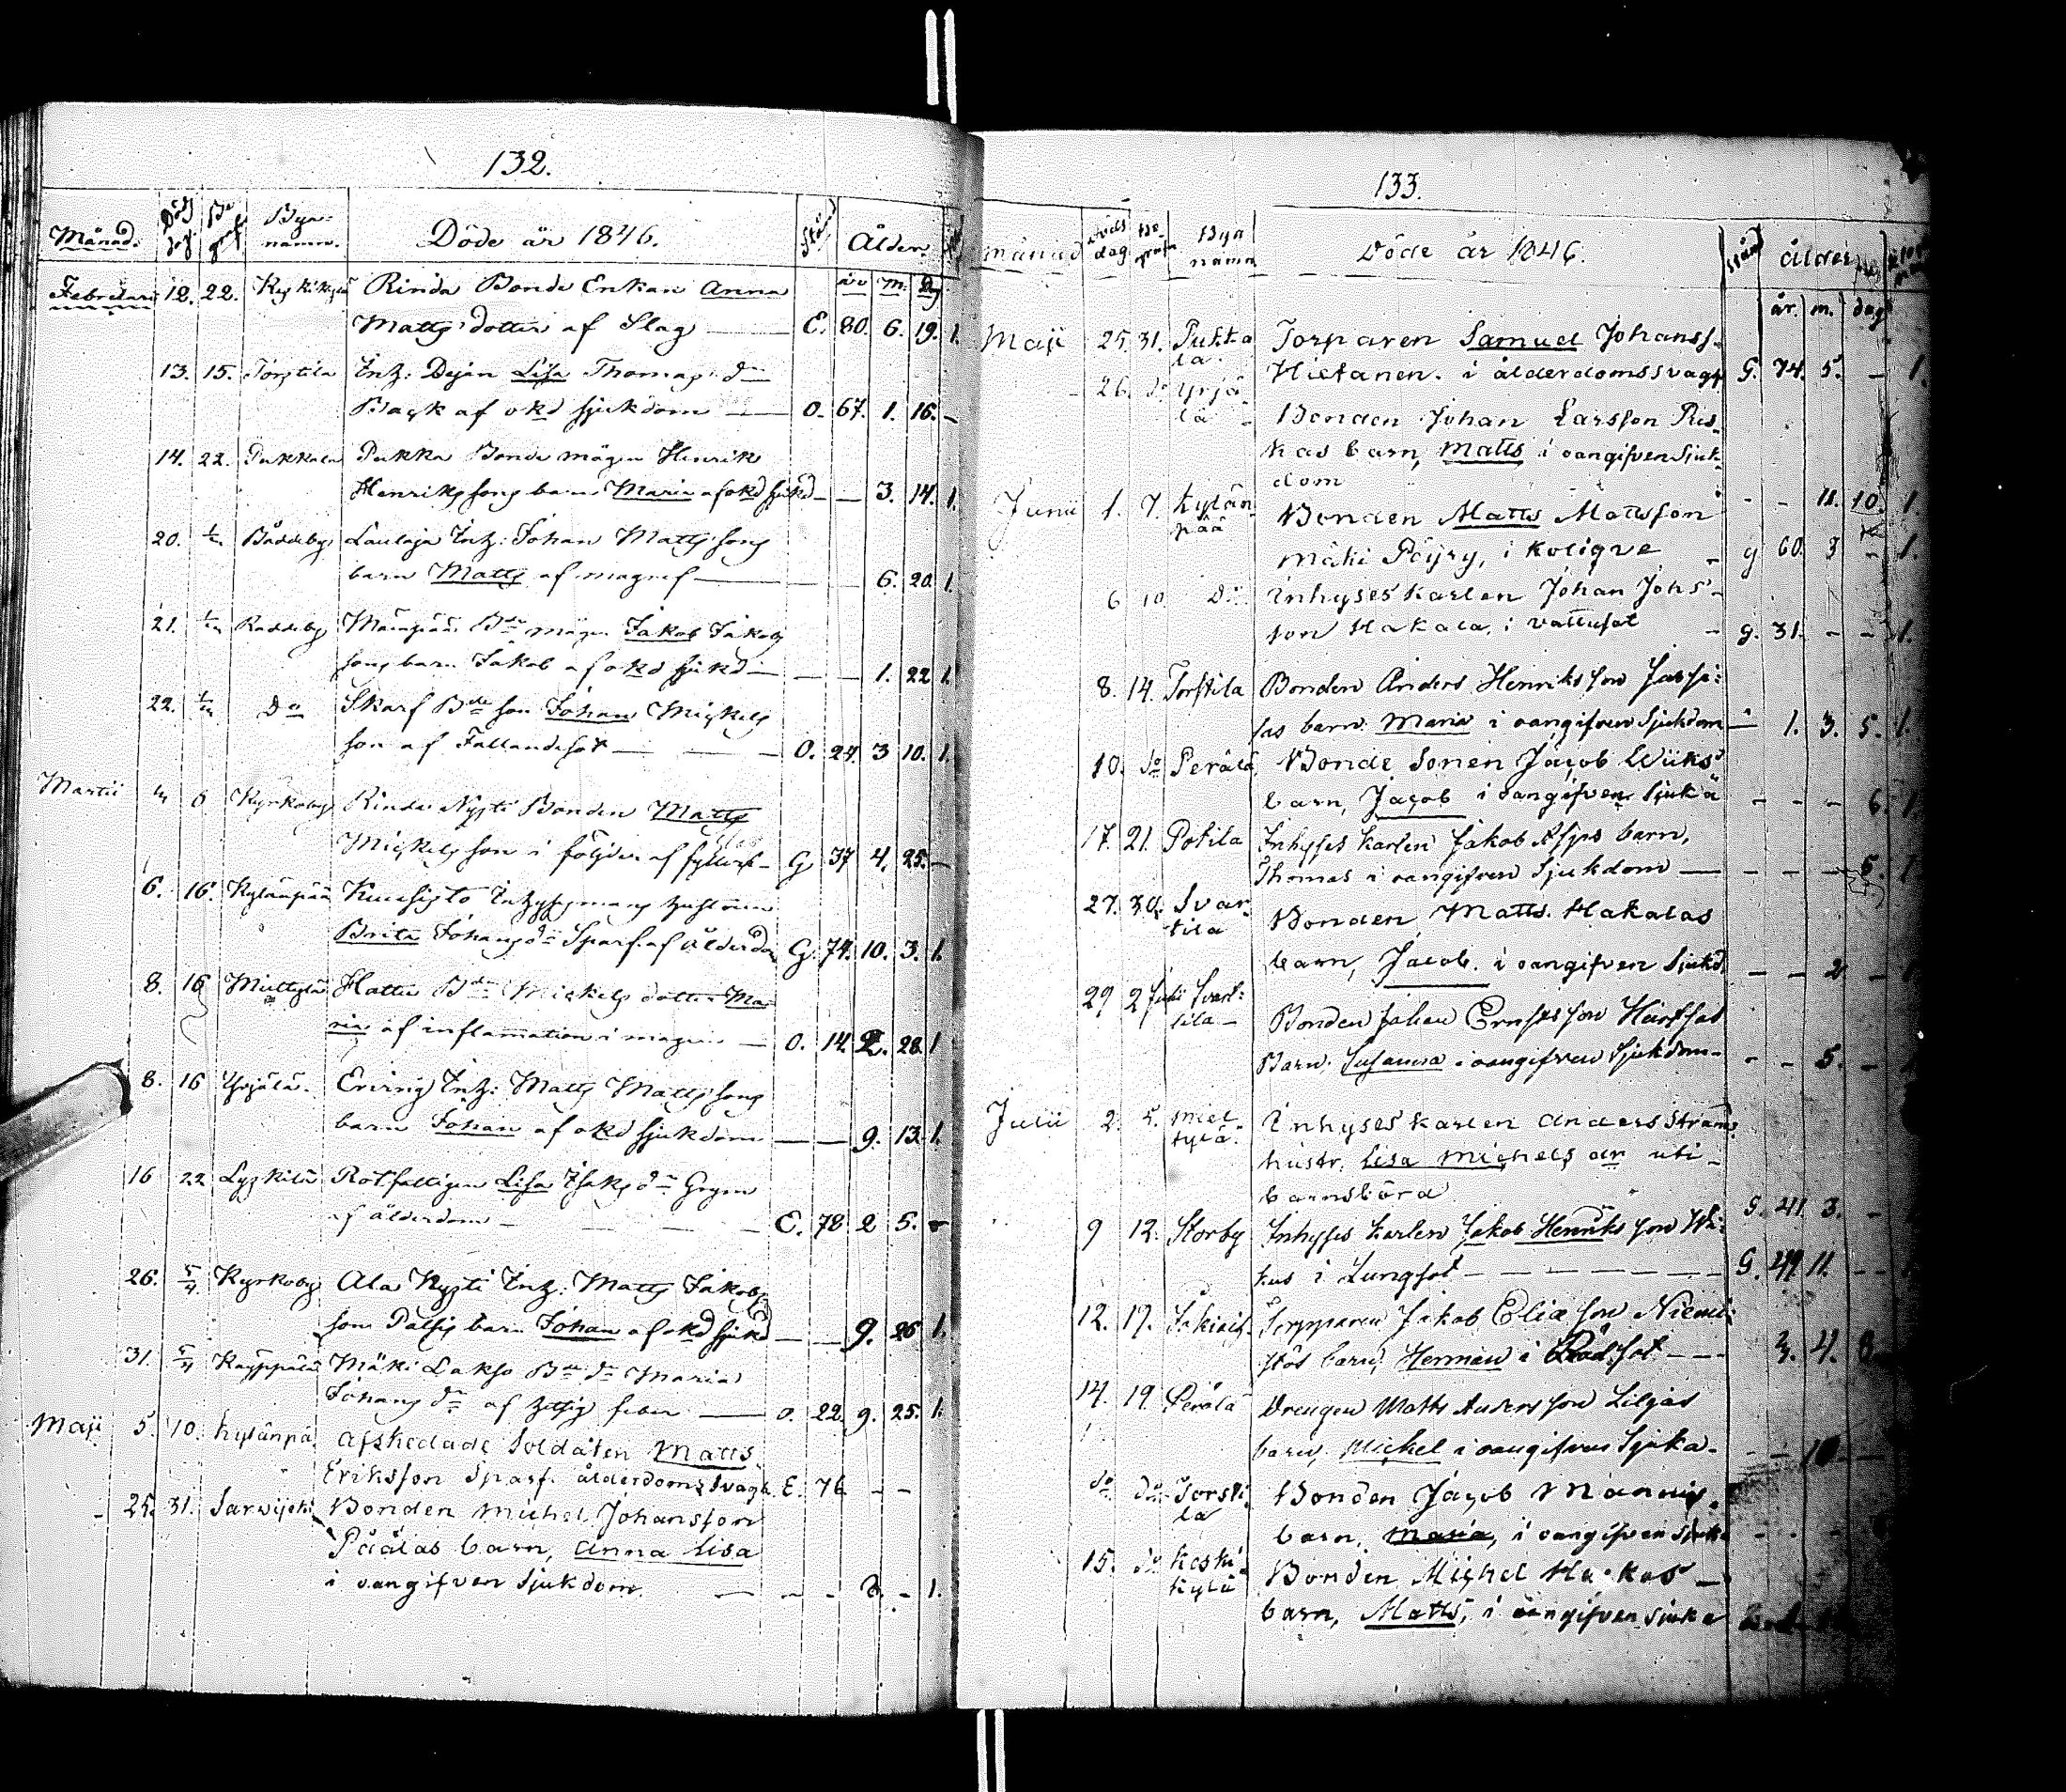 132.
Månad. Döds dag. Be graf. Bya-namn. Döde år 1846. Stånd Ålder
år m. Dg
Februari 12. 22. Rinda Bonde Enkan Anna
Matts dotter af Slag — E. 80. 6. 19. 1.
13. 15. Torstila Inh: Dejan Lisa Thomas dr
af okd sjukdom — O. 67. 1. 16. –
14. 22. Pukkala Pukka Bonde mågen Henrik
Henriks sons barn Maria af okd sjukd – – 3. 14. 1.
20. Båddeby Laulaja Inh: Johan Matts sons
barn Matts af magref — — — 6. 20. 1.
21. Båddeby Bde mågen Jakob Jakobs
sons barn Jakob af okd sjukd — — — 1. 22 1.
22. Do Skarf Bde son Johan Mickels
son af Fallandesot — — O. 24. 3 10. 1.
Martii 6 Kyrkoby Rinda Nysti Bonden Matts
Mickels son i följder af fylleri – G 37 4. 25. –
6. 16. Kylänpää Kuusisto Inhysesmans hustrun
Brita Johans dr Sparf. af ålderdom G. 74. 10. 3. 1.
8. 16 Miettylä Hattu Bde Mickels dotter Ma-
ria af inflamation i magen — O. 14 2. 28. 1
8. 16 Yrjälä. Inh: Matts Matts sons
barn Johan af okd sjukdom — — 9. 13. 1.
16 22 Lyskilä Rotfattigen Lisa Isaks dr
af ålderdom – — — E. 78 2 5. –
26. 5/4. Kyrkoby Ala Nysti Inh: Matts Jakobs
son Palsis barn Johan af okd sjukd — — 9. 26 1.
31. 5/4 Kayppälä Mäki Lakso Bde dr Maria
Johans dr af hetsig feber — O. 22. 9. 25. 1.
Maji 5. 10. Kylänpä. Afskedade Soldaten Matts
Eriksson Sparf. ålderdoms svagh. E. 76 – –
– 25. 31. Sarvijoki Bonden Michel Johansson
Päälas barn, Anna Lisa
i oangifven Sjukdom. — – – 2. – 1.
133.
månad döds dag. be-graf. Byn namn Döde år 1846. stånd ålder
år. m. dag
Maji 25. 31. Pukka
la. Torparen Samuel Johanss.
Hietanen. i ålderdomssvagh G. 74. 5. — 1.
– 26. do Yrjä-
lä – Bonden Johan Larsson Rus-
kas barn, Matts i oangifven Sjuk-
dom – – 11. 10. 1.
Junii 1. 7. Kylän-
pää Bonden Matts Mattsson
Mäki Päyry, i kolique – g 60. 3 – 1.
6 10 Do inhyseskarlen Johan Johs-
son Hakala, i vattusot – g. 31. – – 1.
8. 14. Torstila Bonden Anders Henriksson Jassi-
las barn. Maria i oangifven Sjukdom — 1. 3. 5. 1.
10. do Perälä. Bonde Sonen Jacob Wiiks
barn, Jacob i oangifven Sjuka – – – 6. 1.
17. 21. Potila Inhyses karlen Jakob barn,
Thomas i oangifven Sjukdom — – – – 5. 1
27. 30. Svar-
tila Bonden Matts Hakalas
barn, Jacob. i oangifven Sjukd. – – 2 – 1
29 2 Juli Svart-
tila – Bonden Johan Ernsts son
Barn: Susanna i oangifven Sjukdom – – – 5. –
Julii 2. 5. miel
tylä. inhyseskarlen Anders Ströms
hustr. Lisa Michels dr uti –
barnsbörd G. 41. 3. –
9 12. Storby Inhyses karlen Jakob Henriks son Wii-
kus i Lungsot — — — — G. 49 11. –
12. 19. Torpparen Jakob Elias son Niemi-
stös barn, Herman i Rödsot — — 3. 4. 8.
14. 19. Perälä Drengen Matts Anders son Liljas
barn, Michel i oangifven Sjuka – – – 10. –
do do Torsti-
la Bonden Jacob
barn, Maria, i oangifven Sjuka – – –
15. do Koski
kylä Bonden Michel —
barn, Matts, i oangifven Sjuka